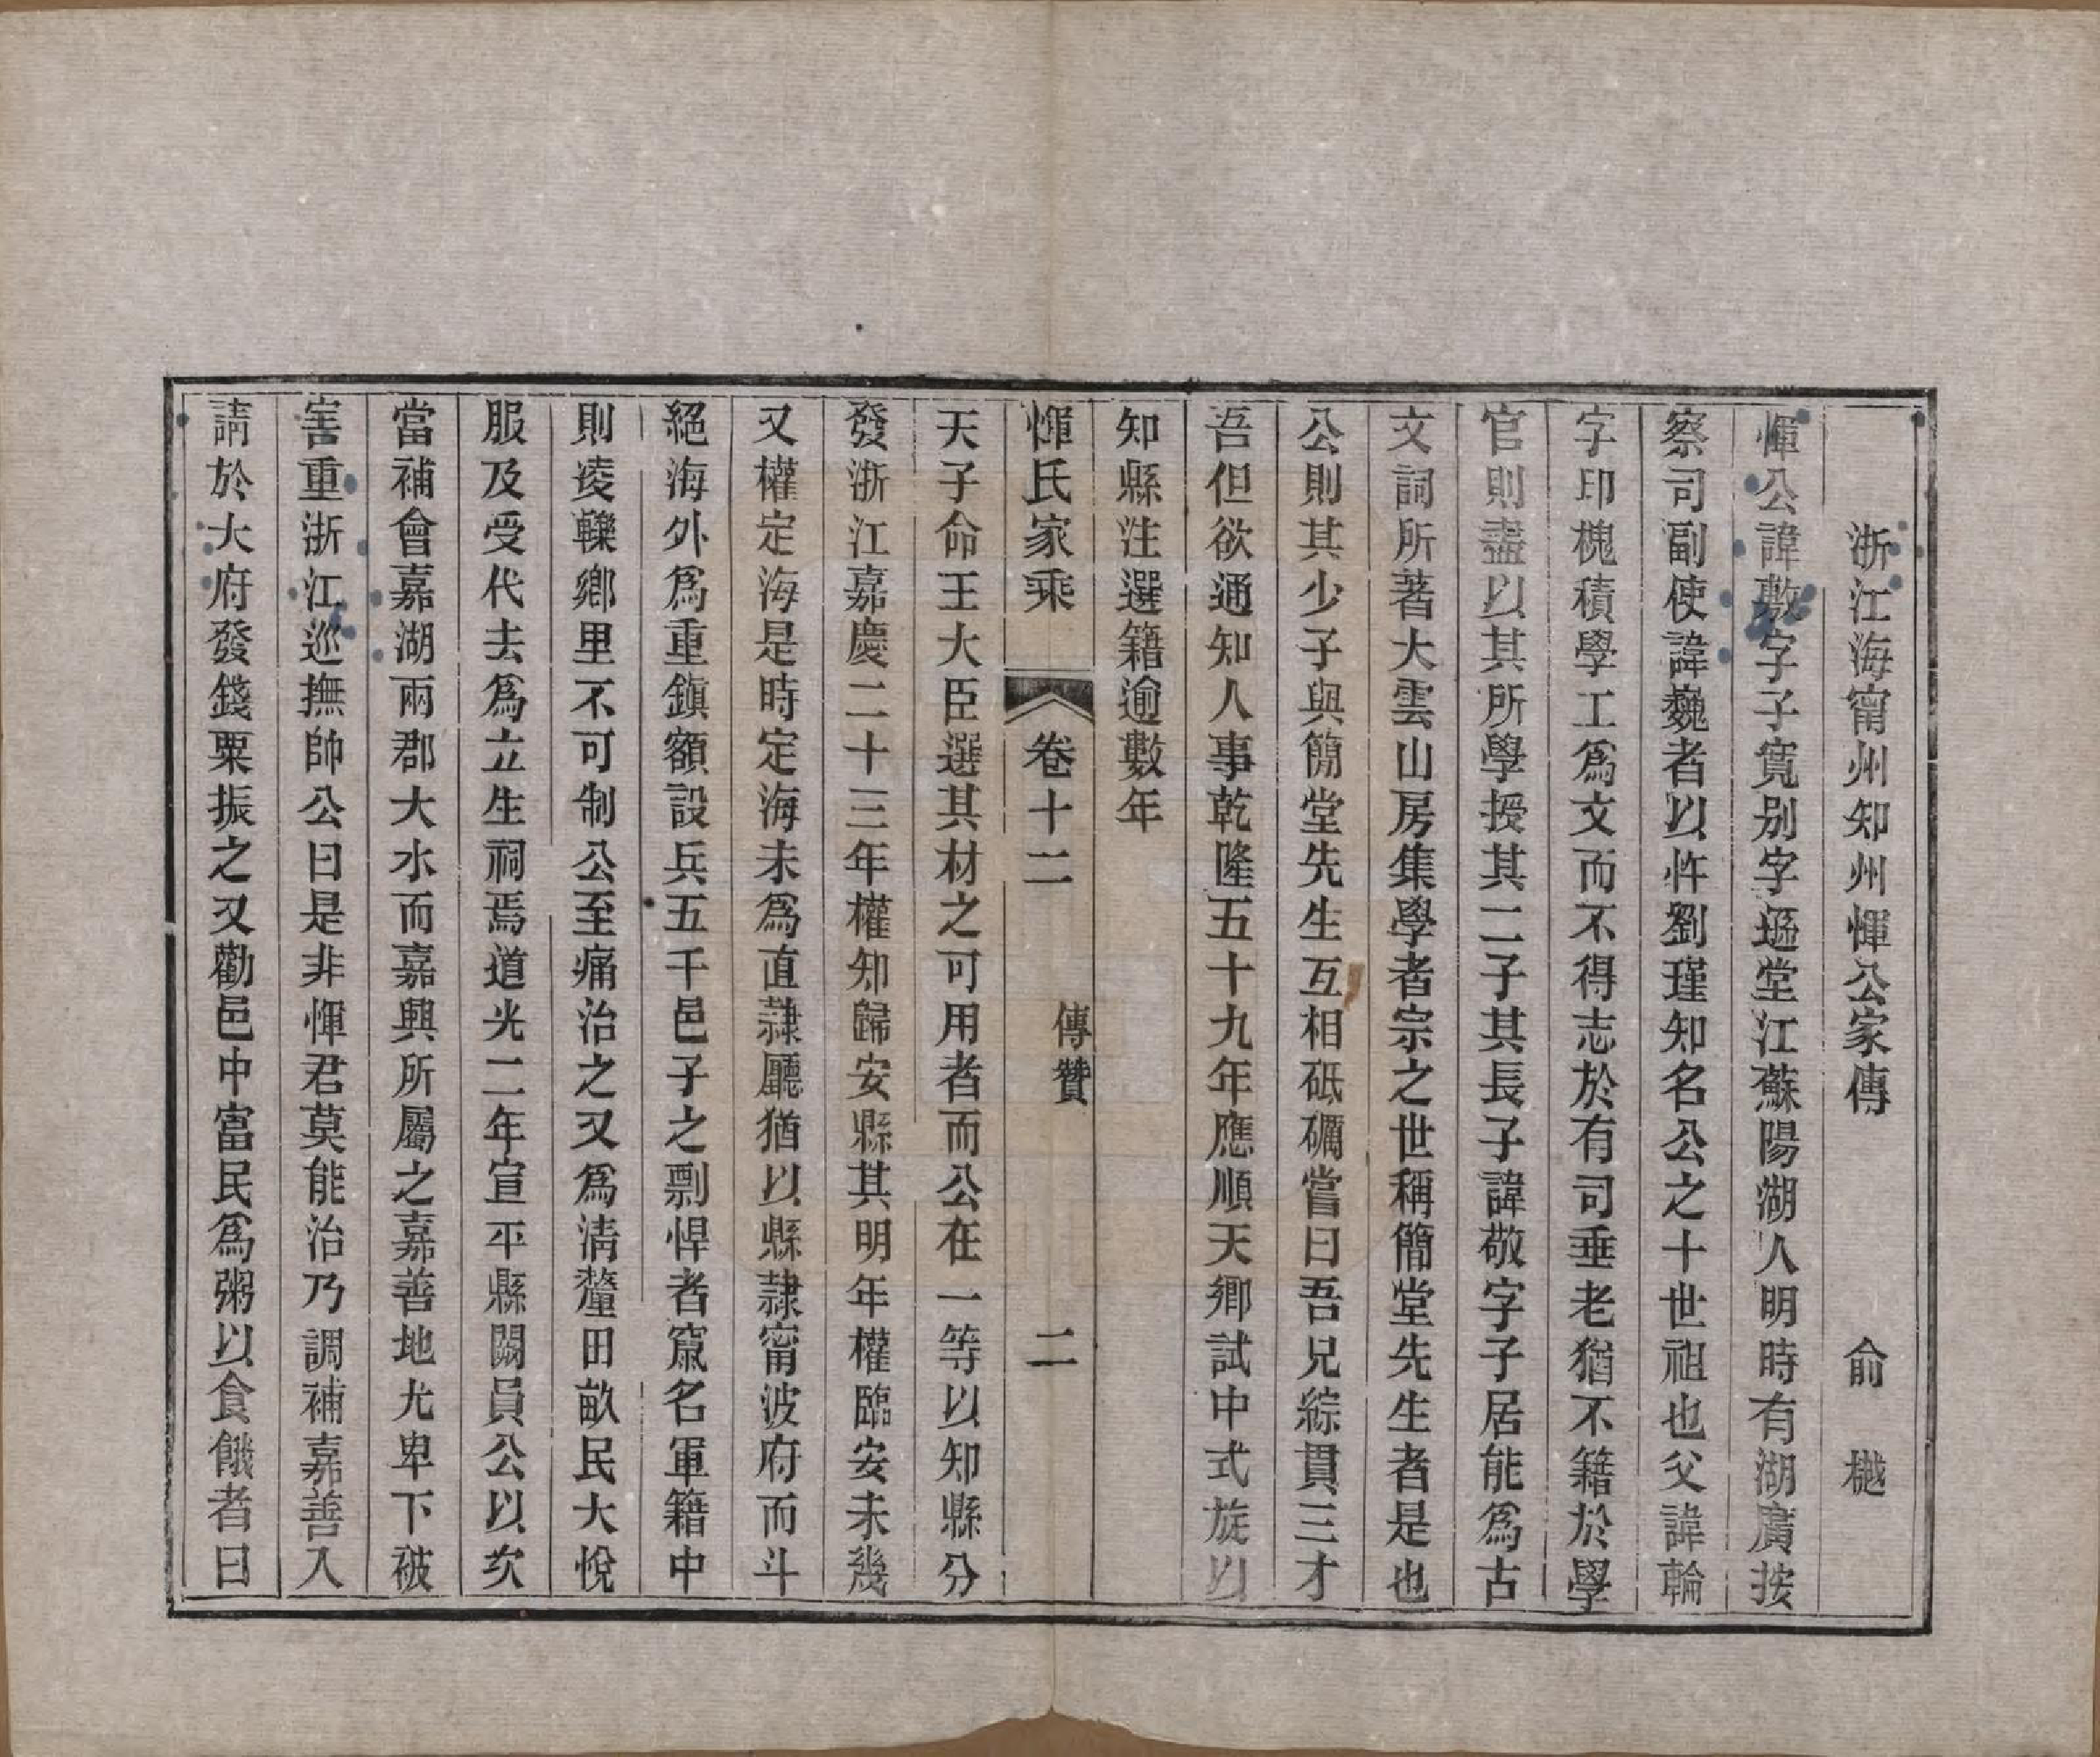 浙江海甯州知州惲公家傳　俞樾
惲公諱敷字子寬别字遜堂江蘇陽湖人明時有湖廣按
察司副使諱巍者以忤劉瑾知名公之十世祖也父諱輪
字印槐積學工爲文而不得志於有司垂老猶不籍於學
官則盡以其所學授其二子其長子諱敬字子居能爲古
文詞所著大雲山房集學者宗之世稱簡堂先生者是也
公則其少子與簡堂先生互相砥礪嘗曰吾兄綜貫三才
吾但欲通知人事乾隆五十九年應順天鄉試中式旋以
知縣注選籍逾數年
惲氏家乘　卷十二　傳贊　二
天子命王大臣選其材之可用者而公在一等以知縣分
發浙江嘉慶二十三年權知歸安縣其明年權臨安未幾
又權定海是時定海未爲直隸廳猶以縣隸甯波府而斗
絕海外爲重鎭額設兵五千邑子之剽悍者竄名軍籍中
則凌轢鄉里不可制公至痛治之又爲清釐田畝民大悅
服及受代去爲立生祠焉道光二年宣平縣闕員公以次
當補會嘉湖兩郡大水而嘉興所屬之嘉善地尤卑下被
害重浙江巡撫帥公曰是非惲君莫能治乃調補嘉善入
請於大府發錢粟振之又勸邑中富民爲粥以食餓者曰